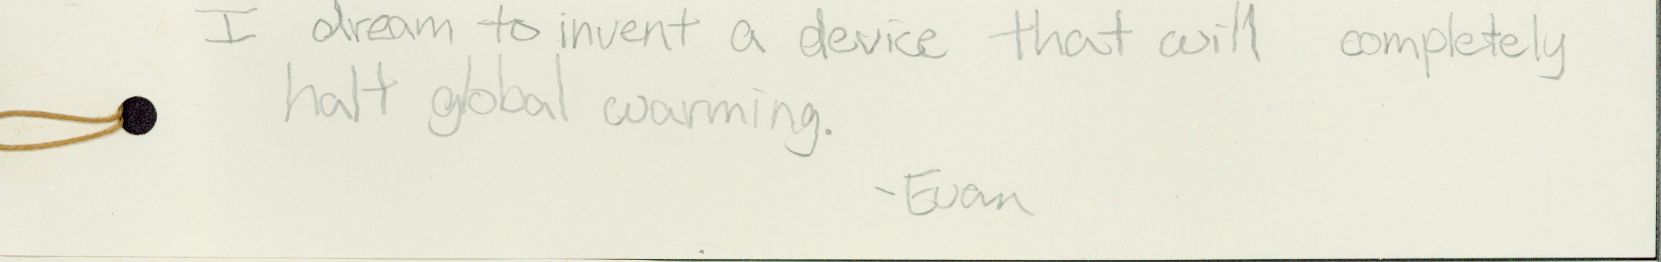 I dream to invent a device that will completely
halt global warming.
-Evan